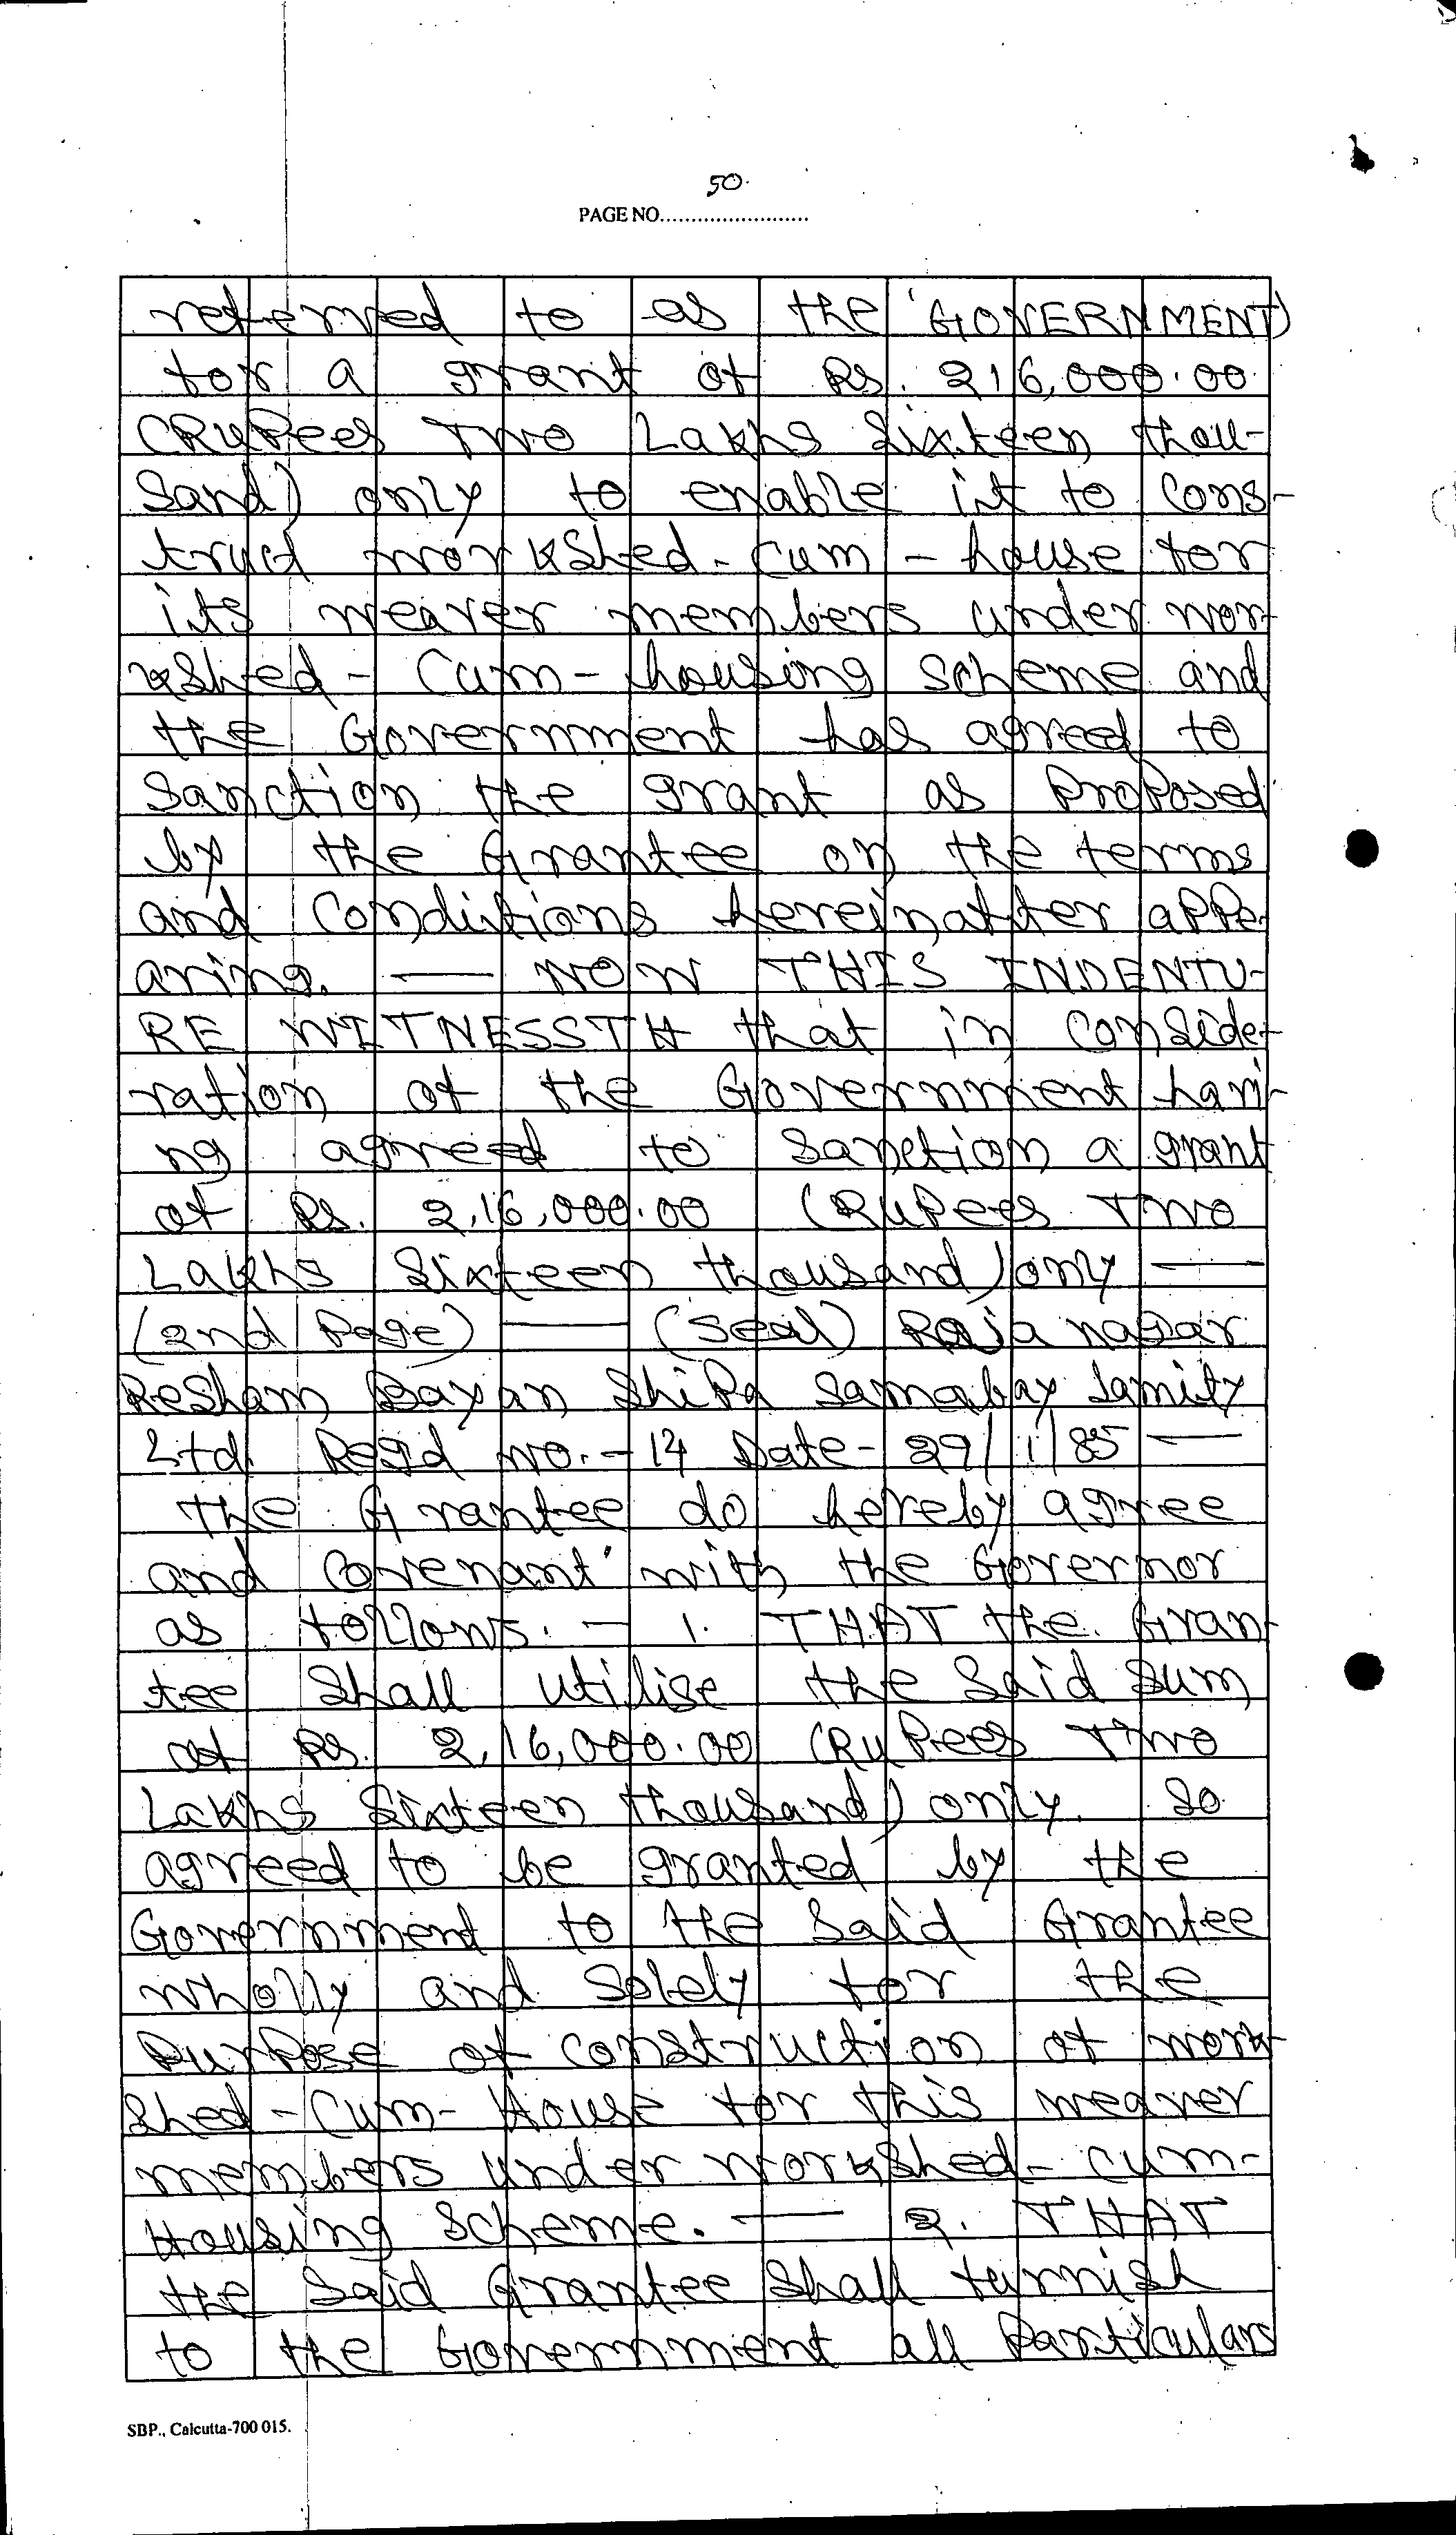 50.
PAGE NO........................
referred to as the 'GOVERNMENT)
for a grant of Rs. 216,000.00
(Rupees Two Lakhs Sixteen thou-
Sand) only to enable it to Cons-
truct workshed-Cum-house for
its weaver members under wor-
kshed-Cum-housing scheme and
the Government has agreed to
Sanction the grant as Proposed
by the Grantee on the terms
and Conditions hereinafter appe-
aring. — NOW THIS INDENTU-
RE WITNESSTH that in Conside-
ration of the Government havi-
ng agreed to Sanction a grant
of Rs. 2,16,000.00 (Rupees Two
Lakhs Sixteen thousand) only —
(2nd Page) — (Seal) Raja nagar
Resham Bayan Shilpa Samabay Samity
Ltd. Regd no.-14 Date-29/1/85 —
the Grantee do hereby agree
and Covenant with the Governor
as follows. — 1. THAT the Gran-
tee Shall utilise the Said Sum
of Rs. 2,16,000.00 (Rupees Two
Lakhs Sixteen thousand) only. So
agreed to be granted by the
Government to the Said Grantee
wholly and Solely for the
Purpose of construction of work-
Shed-Cum-House for this weaver
members under workshed-cum-
Housing Scheme. — 2. THAT
the Said Grantee Shall furnish
to the Government all Particulars
SBP., Calcutta-700 015.